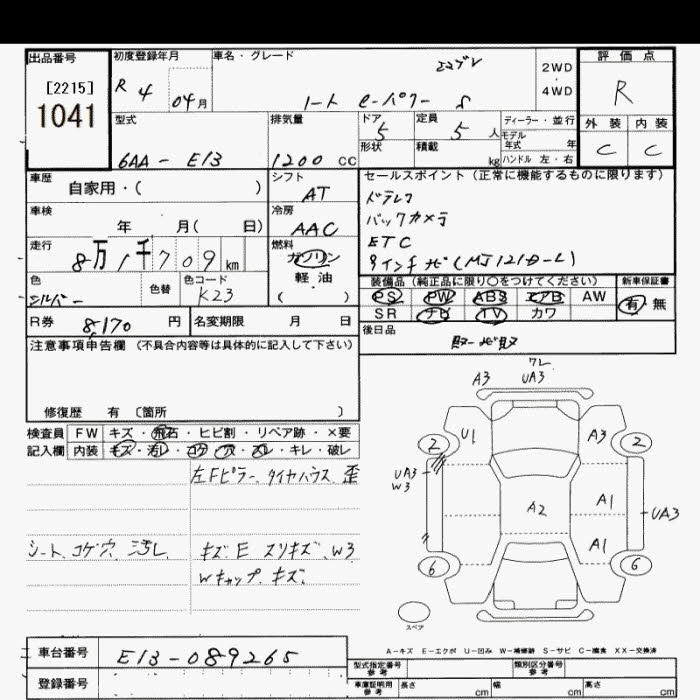 出品番号
[2215]
1041
初度登録年月
R 4 04月
車名・グレード
ノート e-パワー S
2WD
・
4WD
評価点
R
外装 内装
C C
型式
6AA-E13
排気量
1200 cc
ドア
5
定員
5 人
形状
積載
kg
ディーラー・並行
モデル年式 年
ハンドル 左・右
車歴
自家用・( )
シフト
AT
セールスポイント (正常に機能するものに限ります)
ドラレコ
バックカメラ
ETC
9インチナビ(MJ121D-L)
車検
年 月( 日)
冷房
AAC
走行
8万1千709km
燃料
ガソリン
軽・油
( )
色
シルバー
色替
色コード
K23
装備品 (純正品に限り○をつけてください)
新車保証書
PS PW ABS エアB AW
有・無
SR ナビ TV カワ
R券
8,170円
名変期限 月 日
後日品
注意事項申告欄 (不具合内容等は具体的に記入して下さい)
修復歴 有 〔箇所 〕
検査員
記入欄
FW キズ・飛石・ヒビ割・リペア跡・×要
内装 キズ・汚レ・コゲ・穴・スレ・キレ・破レ
左Fピラー、タイヤハウス 歪
シート、コゲ穴、汚レ
キズ、E スリキズ、W3
Wキャップ、キズ
ワレ
A3 UA3
2 U1 A3 2
UA3
W3
A2
A1
UA3
A1
6 6
スペア
A-キズ E-エクボ U-凹み W-補修跡 S-サビ C-腐食 XX-交換済
車台番号
E13-089265
登録番号
型式指定番号
参考
類別区分番号
参考
車庫証明用
参考
長さ cm 幅 cm 高さ cm